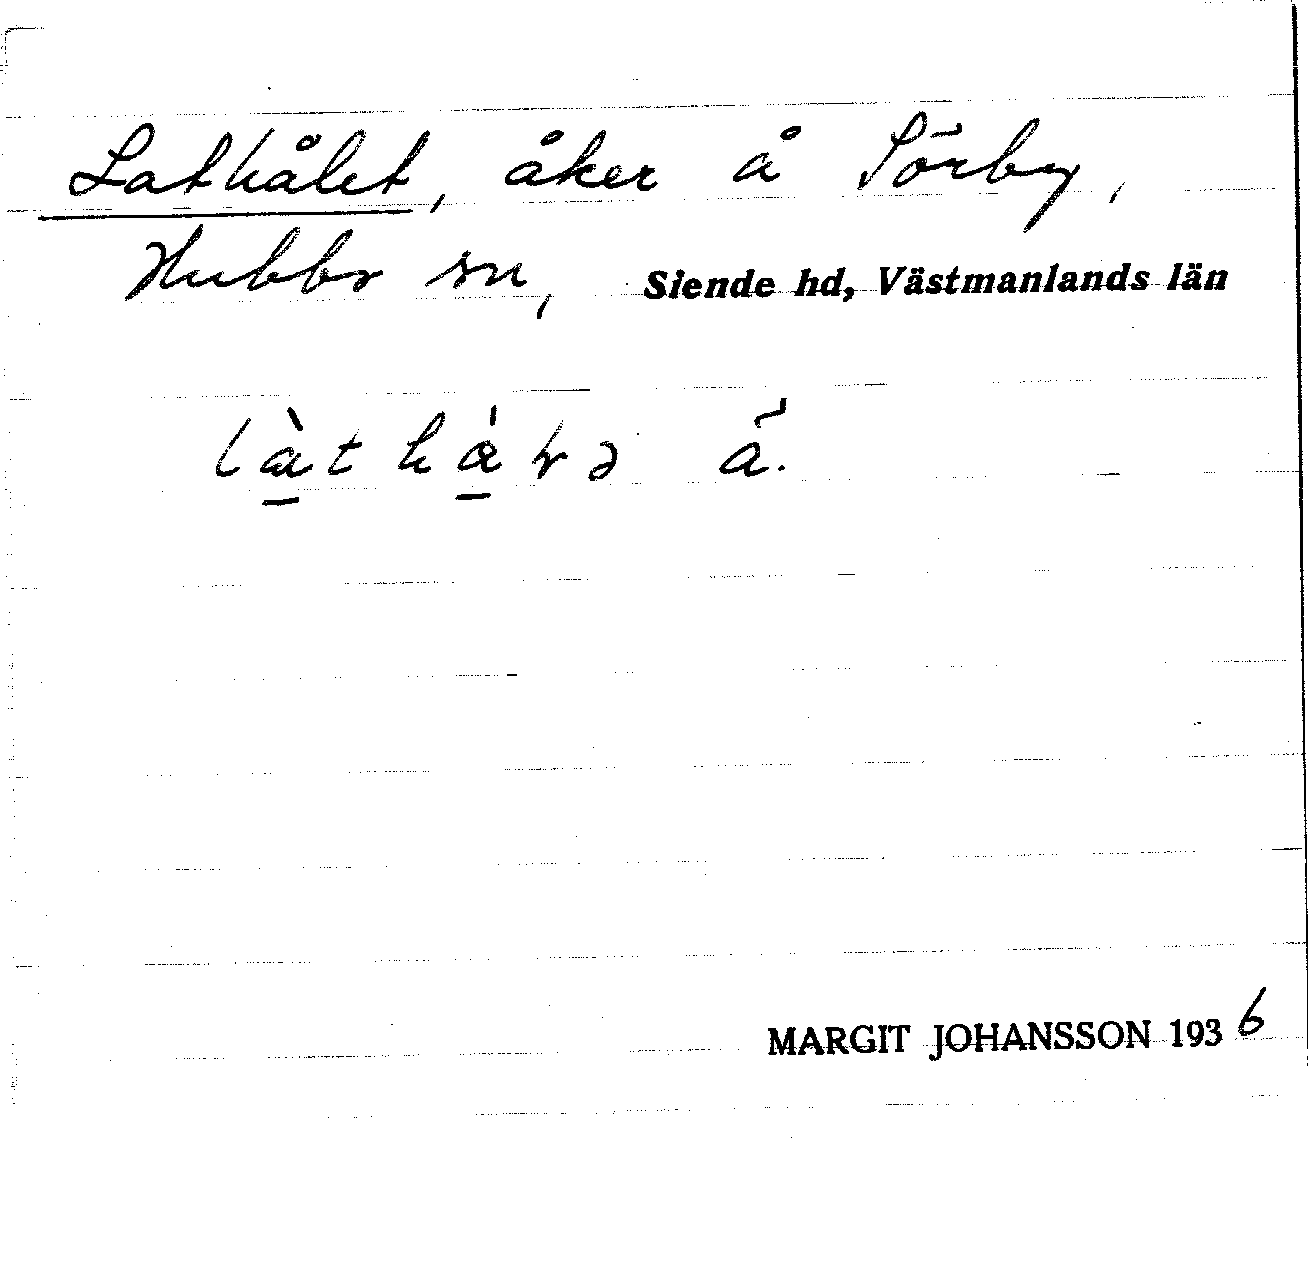 Lathålet, åker å Sörby,
Hubbo sn, Siende hd, Västmanlands län
MARGIT JOHANSSON 1936